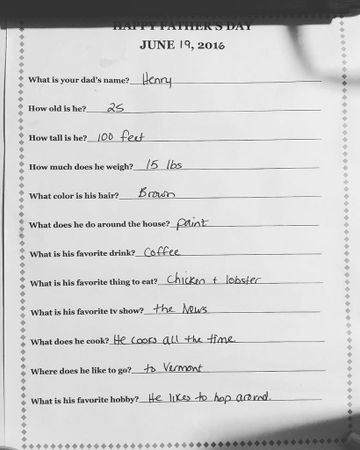 HAPPY FATHER'S DAY
JUNE 19, 2016
What is your dad's name? Henry
How old is he? 25
How tall is he? 100 feet
How much does he weigh? 15 lbs
What color is his hair? Brown
What does he do around the house? paint
What is his favorite drink? Coffee
What is his favorite thing to eat? Chicken + lobster
What is his favorite tv show? the News
What does he cook? He cooks all the time.
Where does he like to go? to Vermont
What is his favorite hobby? He likes to hop around.